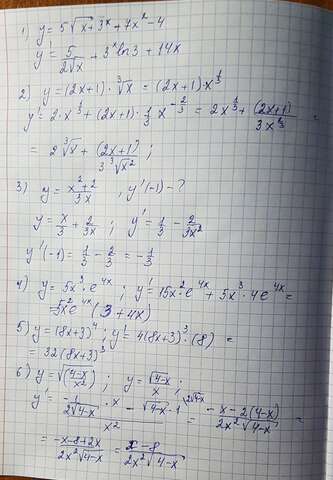 1) y = 5√x + 3^x + 7x² - 4
y' = 5/(2√x) + 3^x ln3 + 14x
2) y = (2x+1) · ∛x = (2x+1) · x^(1/3)
y' = 2 · x^(1/3) + (2x+1) · 1/3 x^(-2/3) = 2x^(1/3) + (2x+1)/(3x^(2/3)) =
= 2∛x + (2x+1)/(3∛x²) ;
3) y = (x²+2)/(3x) , y'(-1) - ?
y = x/3 + 2/(3x) ; y' = 1/3 - 2/(3x²)
y'(-1) = 1/3 - 2/3 = -1/3
4) y = 5x³ · e^(4x) ; y' = 15x² e^(4x) + 5x³ · 4e^(4x) =
= 5x² e^(4x) (3 + 4x)
5) y = (8x+3)⁴ ; y' = 4(8x+3)³ · (8) =
= 32(8x+3)³
6) y = √((4-x)/x²) ; y = √(4-x)/x ;
y' = (-1/(2√(4-x)) · x - √(4-x) · 1)/x² = (-x - 2(4-x))/(2x²√(4-x)) =
= (-x-8+2x)/(2x²√(4-x)) = (x-8)/(2x²√(4-x))